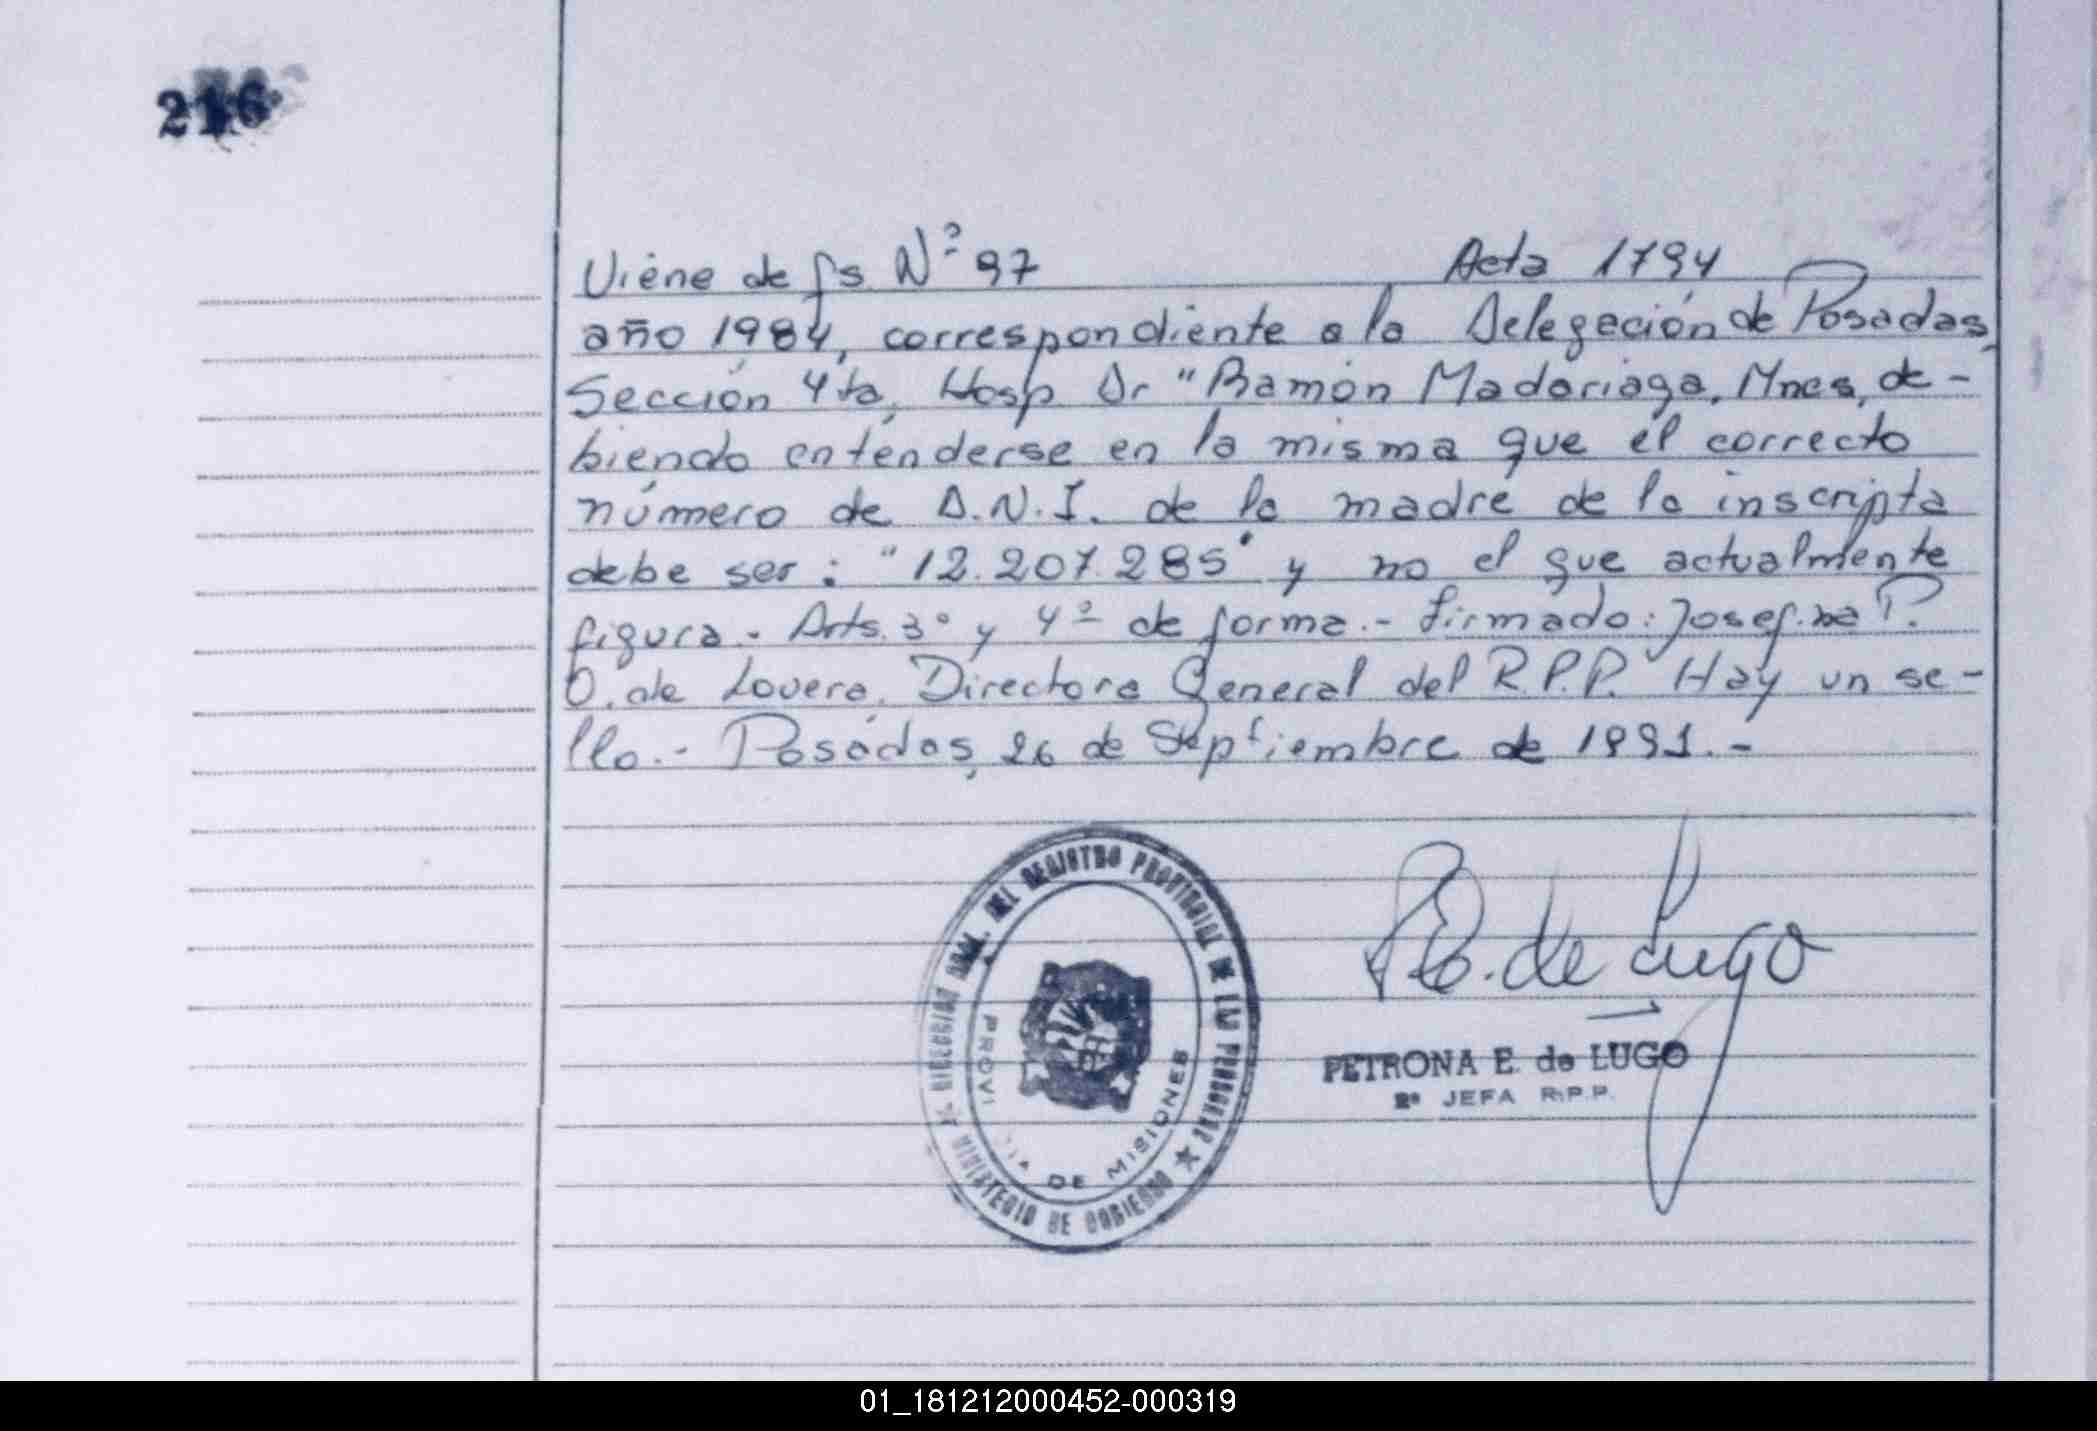 216
Viene de fs. Nº 97 Acta 1794
año 1984, correspondiente a la Delegación de Posadas,
Sección 4ta, Hosp Dr "Ramón Madariaga, Mnes, de-
biendo entenderse en la misma que el correcto
número de D.N.I. de la madre de la inscripta
debe ser: "12.207.285" y no el que actualmente
figura.- Arts. 3º y 4º de forma.- firmado: Josefina P.
O. de Lovera, Directora General del R.P.P. Hay un se-
llo.- Posadas, 26 de Septiembre de 1991.-
DIRECCION GRAL. DEL REGISTRO PROVINCIAL DE LAS PERSONAS
MINISTERIO DE GOBIERNO
PROVI IA DE MISIONES
de Lugo
PETRONA E. de LUGO
2º JEFA R.P.P.
01_181212000452-000319